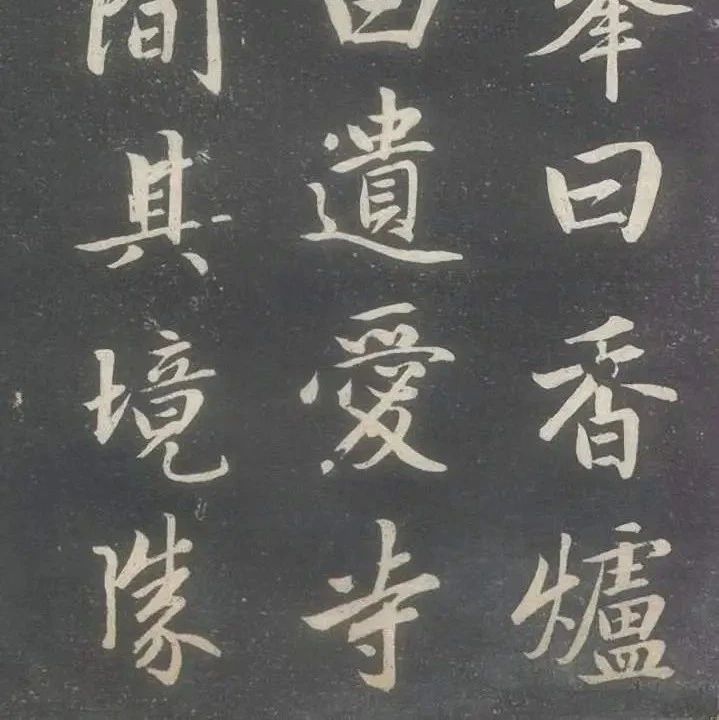 峯曰香爐
曰遺愛寺
間其境勝